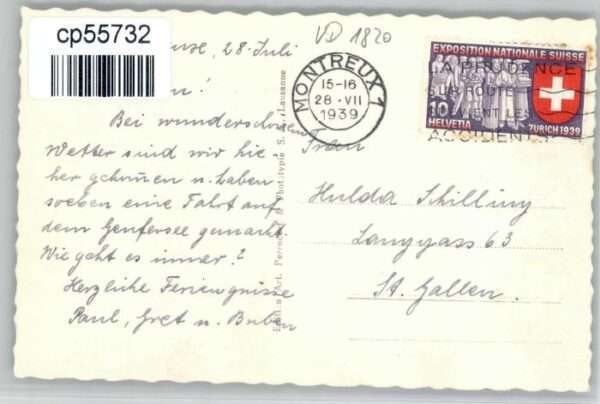 cp55732
28. Juli
VD 1820
Bei wunderschönem
Wetter sind wir hie-
her gekommen u. haben
soeben eine Fahrt auf
dem Genfersee gemacht.
Wie geht es immer?
Herzliche Feriengrüsse
Paul, Gret u. Buben
Lausanne
MONTREUX 1
15-16
28·VII
1939
EXPOSITION NATIONALE SUISSE
10
HELVETIA
ZURICH 1939
LA PRUDENCE
SUR ROUTE
LES
ACCIDENTS
Frau
Hulda Schilling
Langgass 63
St. Gallen.